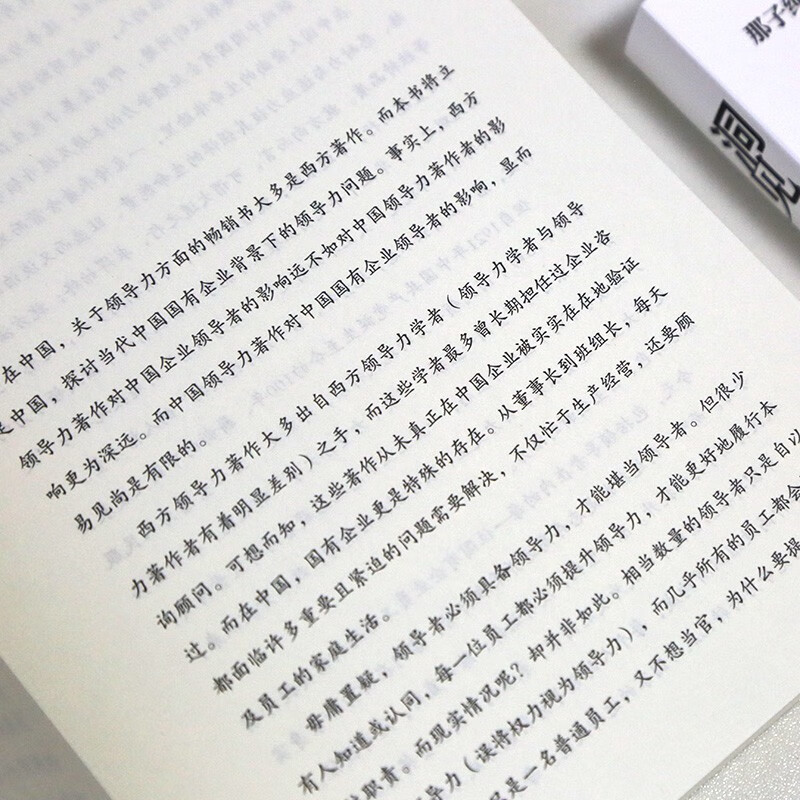 在中国，关于领导力方面的畅销书大多是西方著作。而本书将立
是中国，探讨当代中国国有企业背景下的领导力问题。事实上，西方
领导力著作对中国企业领导者的影响远不如对中国领导力著作者的影
响更为深远。而中国领导力著作对中国国有企业领导者的影响，显而
易见尚是有限的。
西方领导力著作大多出自西方领导力学者（领导力学者与领导
力著作者有着明显差别）之手，而这些学者最多曾长期担任过企业咨
询顾问。可想而知，这些著作从未真正在中国企业被实实在在地验证
过。而在中国，国有企业更是特殊的存在。从董事长到班组长，每天
都面临许多重要且紧迫的问题需要解决，不仅忙于生产经营，还要顾
及员工的家庭生活。
毋庸置疑，领导者必须具备领导力，才能堪当领导者。但很少
有人知道或认同，每一位员工都必须提升领导力，才能更好地履行本
职责。而现实情况呢？却并非如此。相当数量的领导者只是自以
导力（误将权力视为领导力），而几乎所有的员工都会
只是一名普通员工，又不想当官，为什么要提
那子纯
洞见